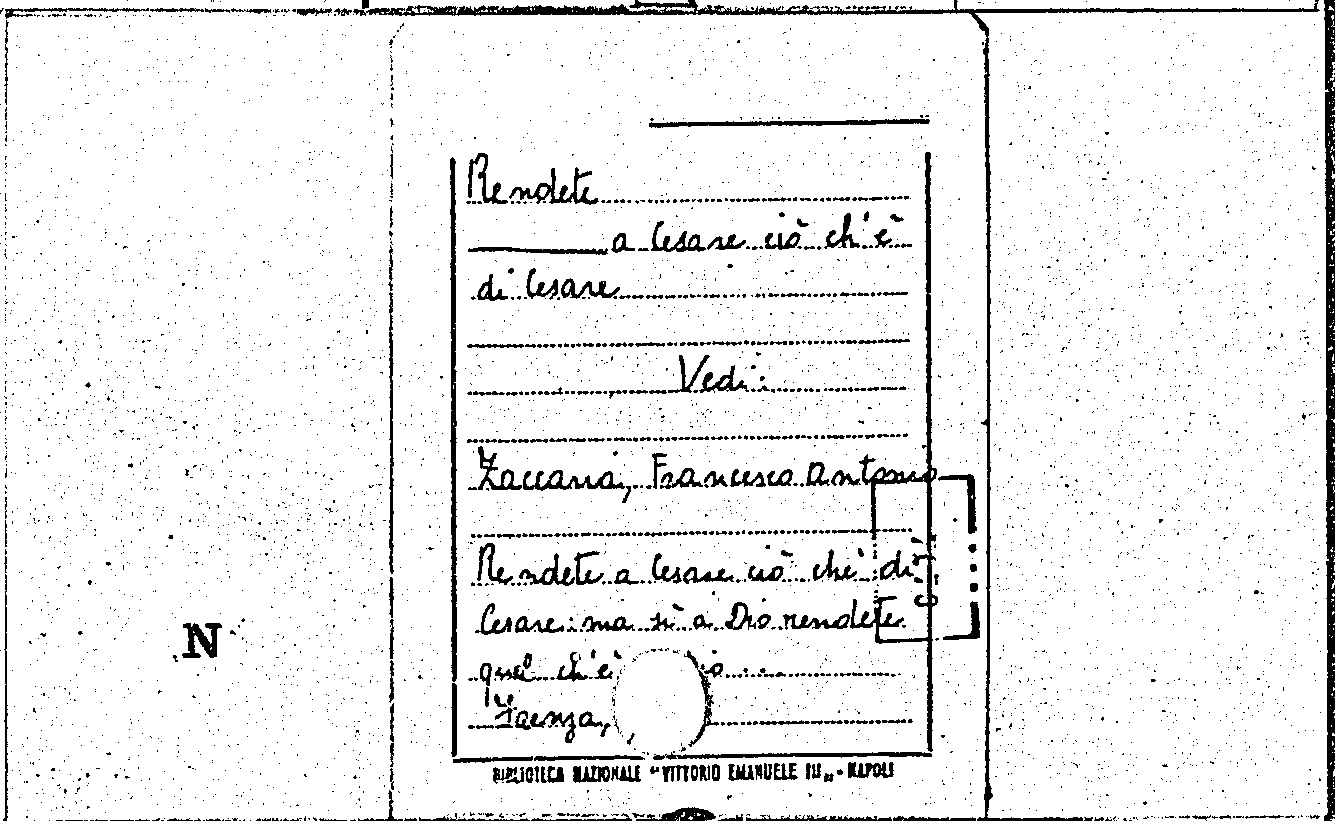 Rendete
a Cesare ciò ch'è
di Cesare
Vedi:
Zaccaria, Francesco Antonio
Rendete a Cesare ciò ch'è di
Cesare: ma sì a Dio rendete
quel ch'è
Faenza,
N
BIBLIOTECA NAZIONALE "VITTORIO EMANUELE III" - NAPOLI